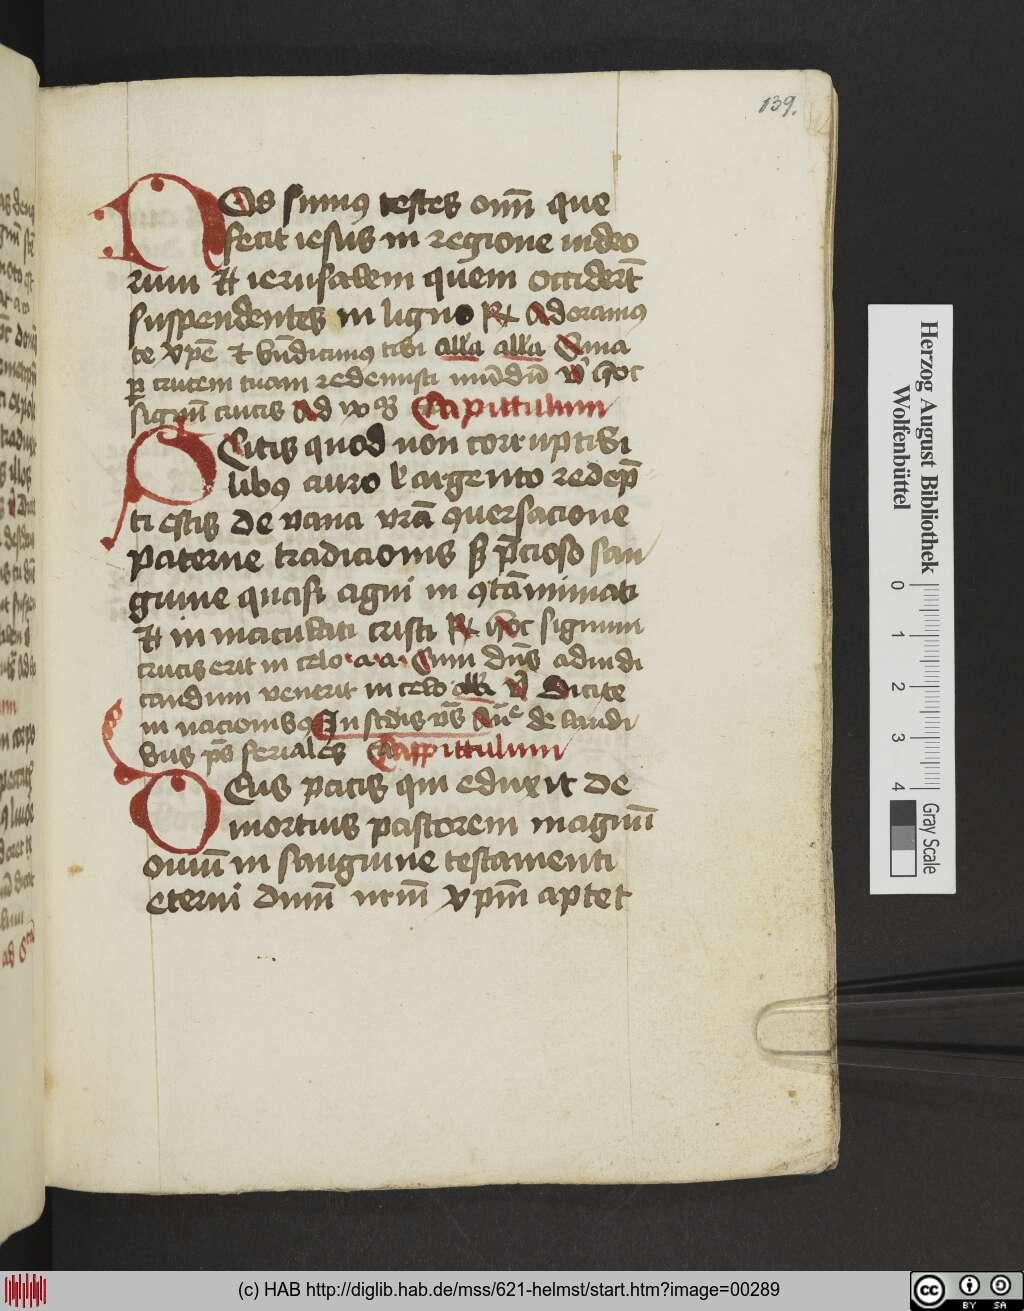 139.
Nos sumus testes oīm̄ que
fecit iesus in regione iudeo
rum et ierusalem quem occiderūt
suspendentes in ligno R Adoramus
te xp̄e et bn̄dicimus tibi all'a all'a Quia
per crucem tuam redemisti mūdū v̄ hoc
signū crucis Ad
Capittulum
Scitis quod non corruptibi
libus auro l' argento redemp̄
ti estis de vana vrā conuersacione
paterne tradicionis s; p̄cioso san
guine quasi agni in contāminati
et in maculati cristi R hoc signum
crucis erit in celo a a Cum dn̄s ad iudi
candum venerit in celo all'a v̄ Dicite
in nacionibus In scd̄is vs̄ de laudi
bus ps̄ feriales Cappittulum
Deus pacis qui eduxit de
mortuis pastorem magnū
ouiū in sanguine testamenti
eterni dnm̄ nrm̄ xpm̄ aptet
Herzog August Bibliothek
Wolfenbüttel
0 1 2 3 4
Gray Scale
(c) HAB http://diglib.hab.de/mss/621-helmst/start.htm?image=00289
cc BY SA